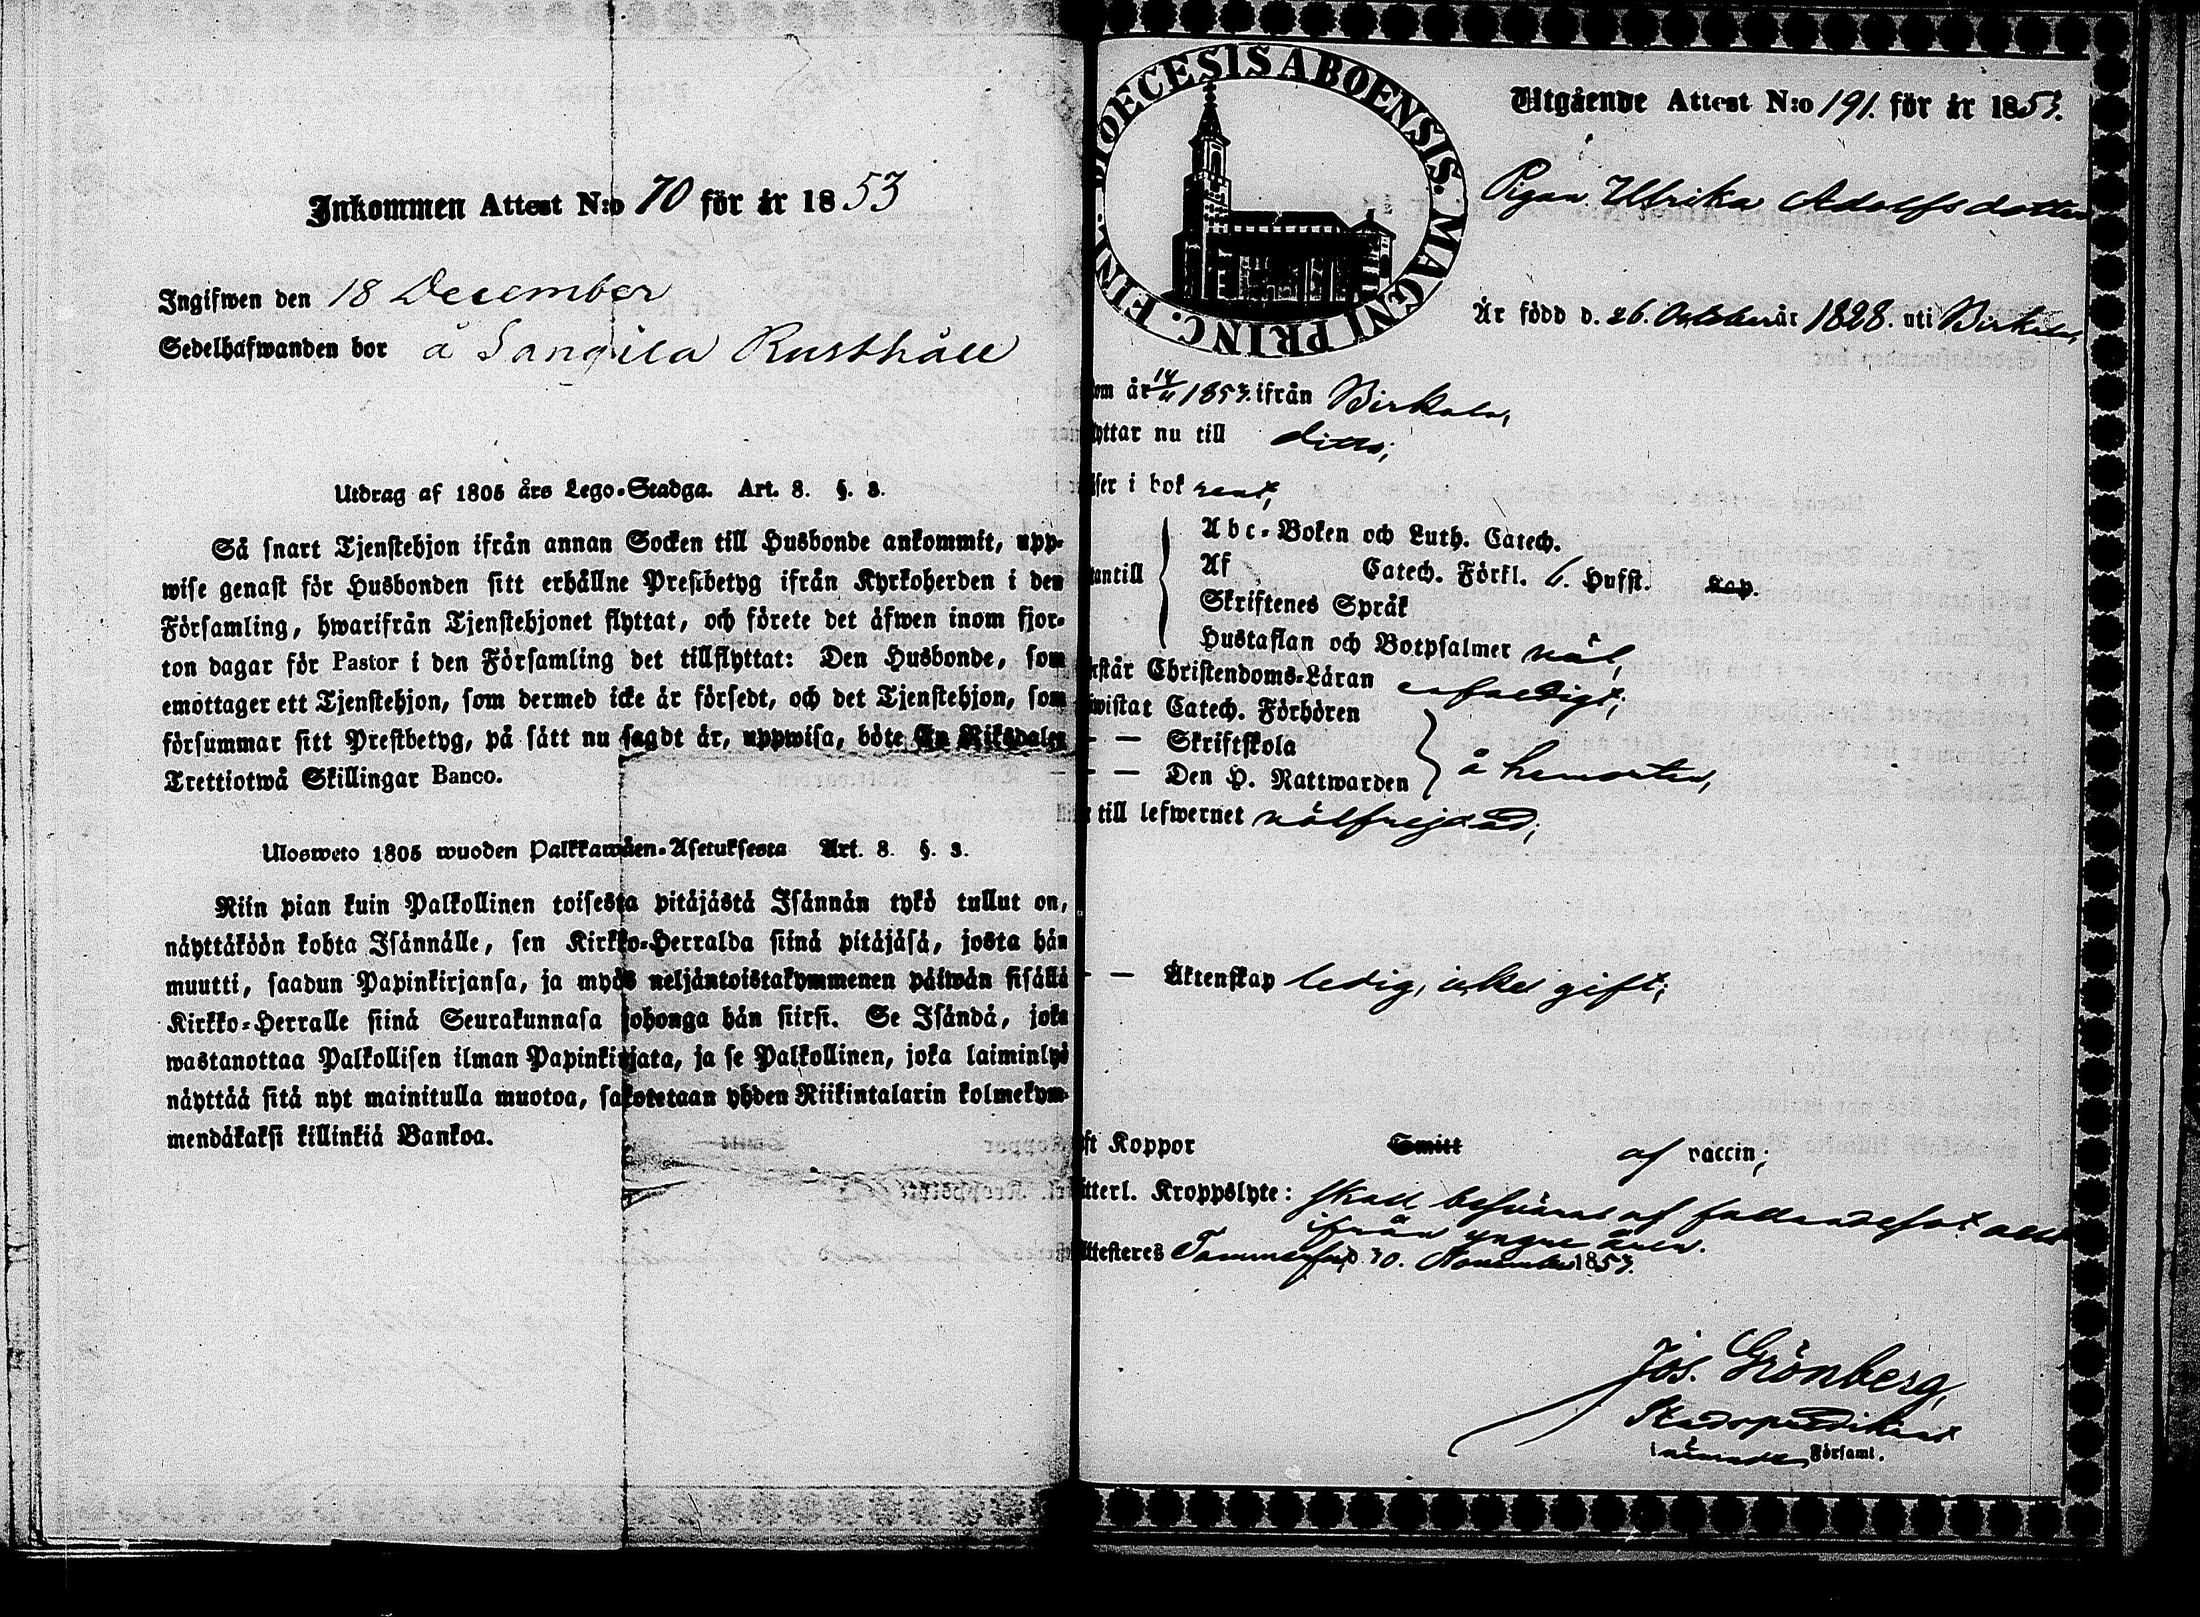 Inkommen Attest N:o 70 för år 1853
Ingifwen den 18 December
Sedelhafwanden bor å Sangila Rusthåll
Utdrag af 1805 års Lego-Stadga. Art. 8. §. 3.
Så snart Tjenstehjon ifrån annan Socken till Husbonde ankommit, upp-
wise genast för Husbonden sitt erhållne Prestbetyg ifrån Kyrkoherden i den
Församling, hwarifrån Tjenstehjonet flyttat, och förete det äfwen inom fjor-
ton dagar för Pastor i den Församling det tillflyttat: Den Husbonde, som
emottager ett Tjenstehjon, som dermed icke är försedt, och det Tjenstehjon, som
försummar sitt Prestbetyg, på sätt nu sagdt är, uppwisa, böte En Riksdaler
Trettiotwå Skillingar Banco.
Ulosweto 1805 wuoden Palkkawäen-Asetuksesta Art. 8. §. 3.
Niin pian kuin Palkollinen toisesta pitäjästä Isännän tykö tullut on,
näyttäköön kohta Isännälle, sen Kirkko-Herralda siinä pitäjäsä, josta hän
muutti, saadun Papinkirjansa, ja myös neljäntoistakymmenen päiwän sisällä
Kirkko-Herralle siinä Seurakunnasa johonga hän siirsi. Se Isändä, joka
wastanottaa Palkollisen ilman Papinkirjata, ja se Palkollinen, joka laiminlyö
näyttää sitä nyt mainitulla muotoa, sakotetaan yhden Riikintalarin kolmekym-
mendäkaksi killinkiä Bankoa.
DIOECESIS ABOENSIS. MAGNI PRINC. FINL.
Utgående Attest N:o 191. för år 1853.
Pigan Ulrika Adolfsdotter
Är född d. 26. October år 1828. uti Birkala,
om år 14/11 1853. ifrån Birkala,
yttar nu till ditto;
äser i bok rent,
Abc-Boken och Luth. Catech.
antill Af Catech. Förkl. 6. Hufst. Kap.
Skriftenes Språk
Hustaflan och Botpsalmer nöl,
rstår Christendoms-Läran enfaldigt;
wistat Catech. Förhören
— — Skriftskola
— — Den H. Nattwarden å hemorten,
till lefwernet välfrejdad;
— — Äktenskap ledig, icke gift;
ft Koppor Smitt af vaccin;
tterl. Kroppslyte: skall besväras af fallandesot allt
ifrån yngre åren.
ttesteres Tammerfors d. 30. November 1853.
Jos. Grönberg,
Stadspredikant
i nämnde Församl.